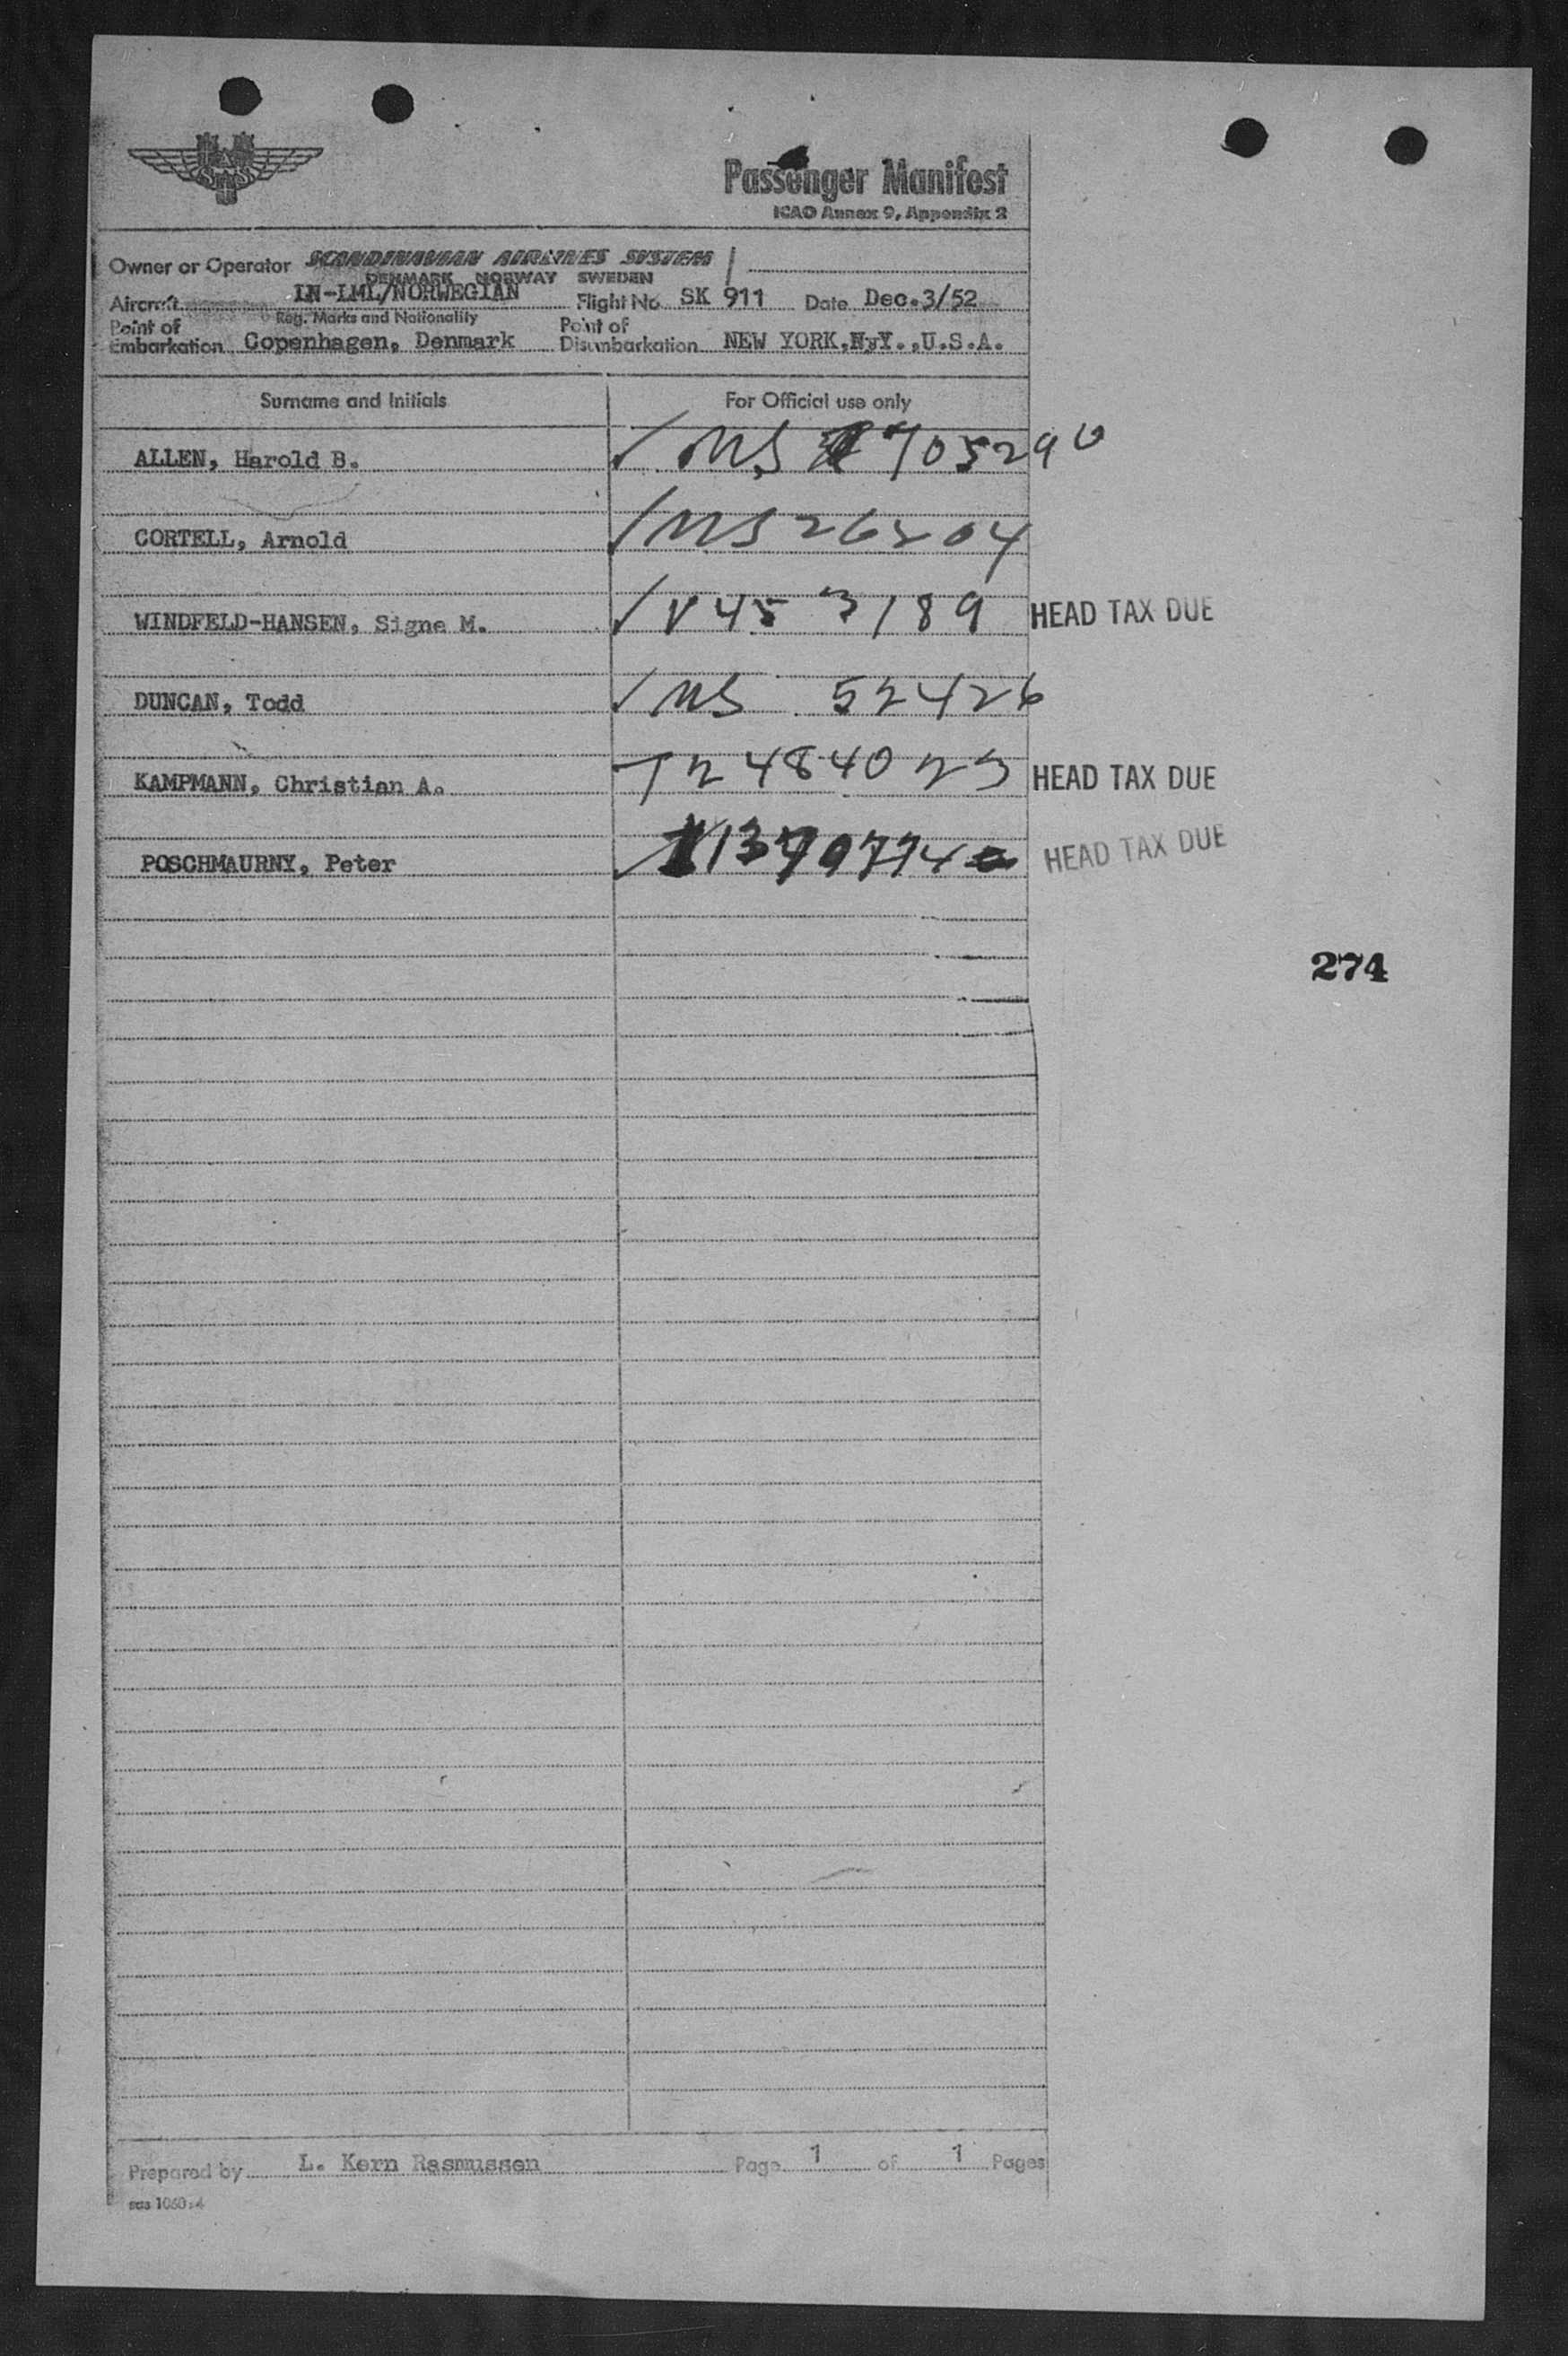 SAS
Passenger Manifest
ICAO Annex 9, Appendix 2
Owner or Operator SCANDINAVIAN AIRLINES SYSTEM
DENMARK NORWAY SWEDEN
Aircraft LN-LML/NORWEGIAN Flight No. SK 911 Date Dec.3/52
Reg. Marks and Nationality
Point of Embarkation Copenhagen, Denmark Point of Disembarkation NEW YORK,NyY.,U.S.A.
Surname and Initials For Official use only
ALLEN, Harold B. MS 705290
CORTELL, Arnold MS 26204
WINDFELD-HANSEN, Signe M. V 453189 HEAD TAX DUE
DUNCAN, Todd MS 52426
KAMPMANN, Christian A. T2484023 HEAD TAX DUE
POSCHMAURNY, Peter HEAD TAX DUE
274
Prepared by L. Kern Rasmussen Page 1 of 1 Pages
sas 1060:4